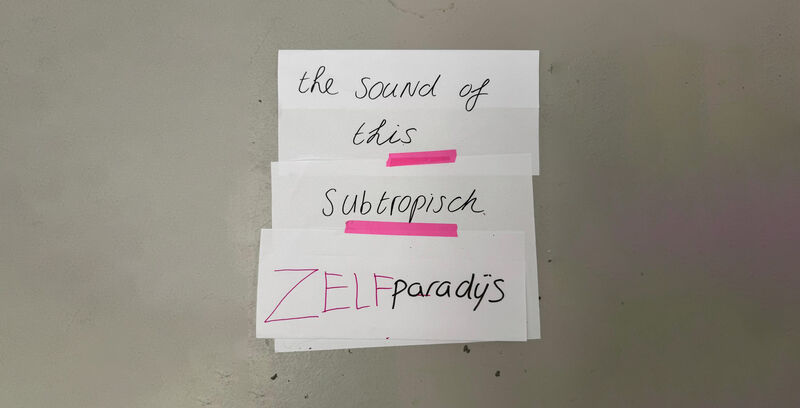 the sound of
this
Subtropisch.
ZELFparadijs